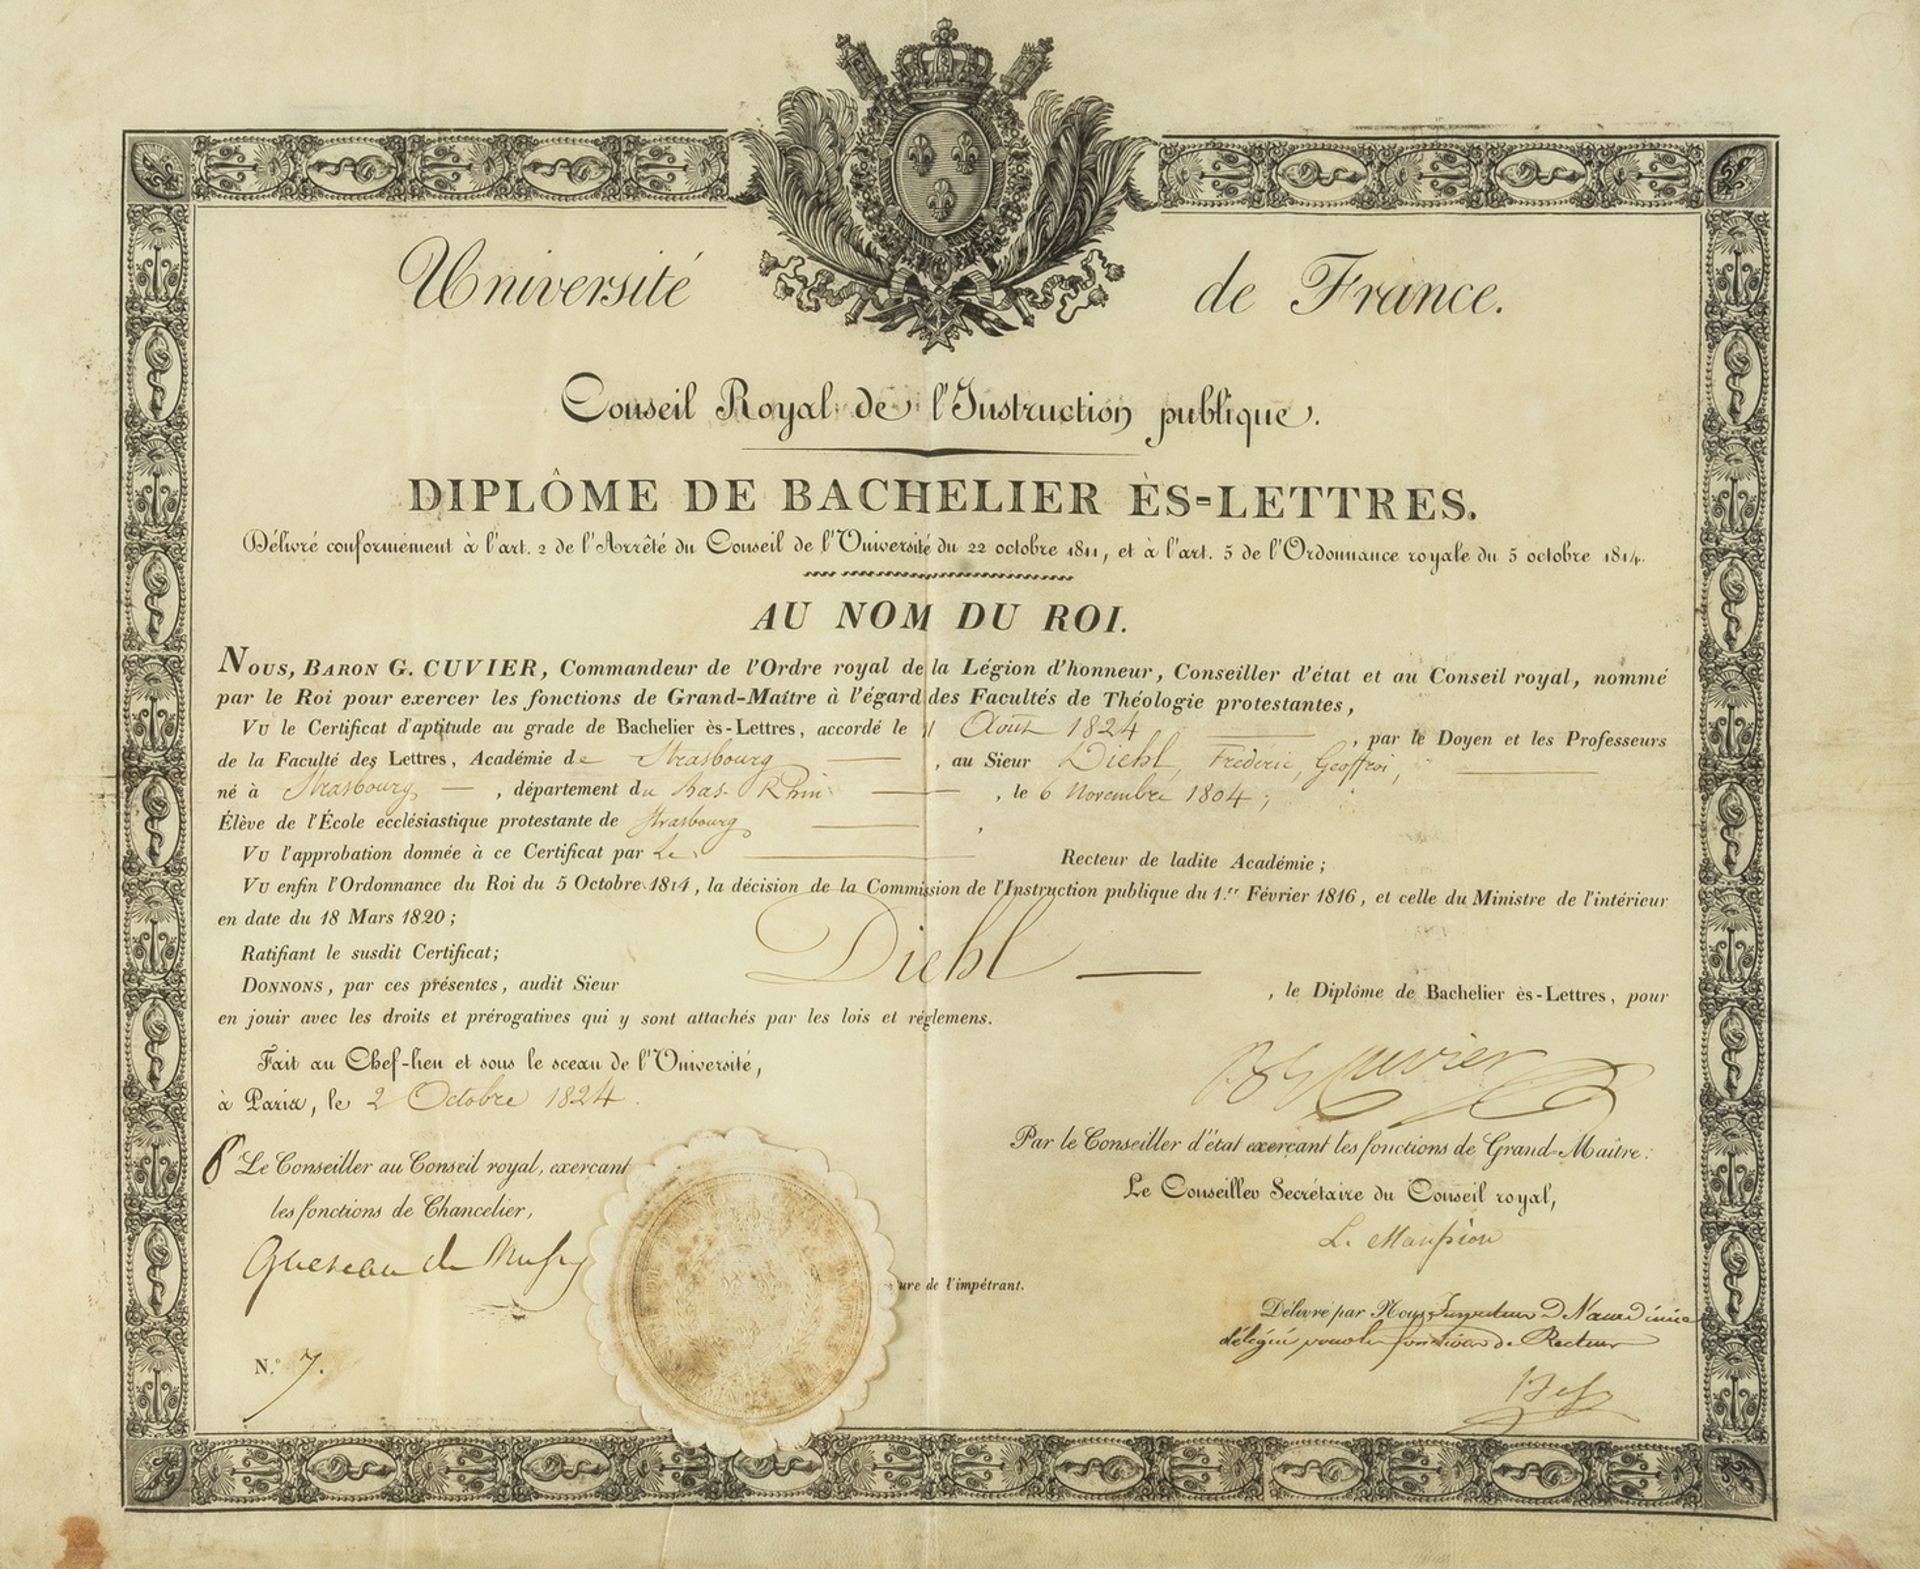 Université de France.
Conseil Royal de l'Instruction publique.
DIPLÔME DE BACHELIER ÈS-LETTRES.
Délivré conformément à l'art. 2 de l'Arrêté du Conseil de l'Université du 22 octobre 1811, et à l'art. 5 de l'Ordonnance royale du 5 octobre 1814.
AU NOM DU ROI.
NOUS, BARON G. CUVIER, Commandeur de l'Ordre royal de la Légion d'honneur, Conseiller d'état et au Conseil royal, nommé
par le Roi pour exercer les fonctions de Grand-Maître à l'égard des Facultés de Théologie protestantes,
VU le Certificat d'aptitude au grade de Bachelier ès-Lettres, accordé le Août 1824, par le Doyen et les Professeurs
de la Faculté des Lettres, Académie de Strasbourg, au Sieur Diehl, Frédéric, Geoffroi,
né à Strasbourg, département du Bas-Rhin, le 6 Novembre 1804;
Élève de l'École ecclésiastique protestante de Strasbourg,
VU l'approbation donnée à ce Certificat par Le Recteur de ladite Académie;
VU enfin l'Ordonnance du Roi du 5 Octobre 1814, la décision de la Commission de l'Instruction publique du 1.er Février 1816, et celle du Ministre de l'intérieur
en date du 18 Mars 1820;
Ratifiant le susdit Certificat;
DONNONS, par ces présentes, audit Sieur Diehl, le Diplôme de Bachelier ès-Lettres, pour
en jouir avec les droits et prérogatives qui y sont attachés par les lois et réglemens.
Fait au Chef-lieu et sous le sceau de l'Université,
à Paris, le 2 Octobre 1824.
Cuvier
Par le Conseiller d'état exerçant les fonctions de Grand-Maître:
Le Conseiller au Conseil royal, exerçant
les fonctions de Chancelier,
Gueneau de Mussy
Le Conseiller Secrétaire du Conseil royal,
L. Maupiou
ure de l'impétrant.
Délivré par Nous Inspecteur D'Académie
délégué pour les fonctions de Recteur
N.° 7.